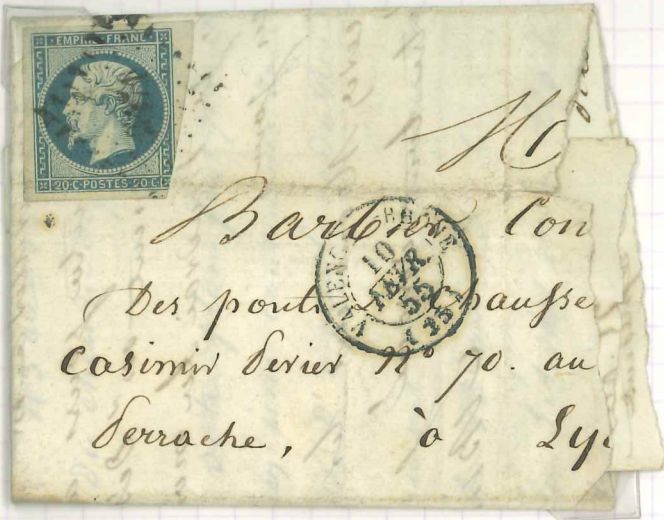 EMPIRE FRANC
20·C·POSTES 20·C
M
Barbier Con
VALENCE RHONE
10
FEVR
55
(25)
Des ponts Chausse
Casimir Perier N° 70. au
Perrache, à Ly